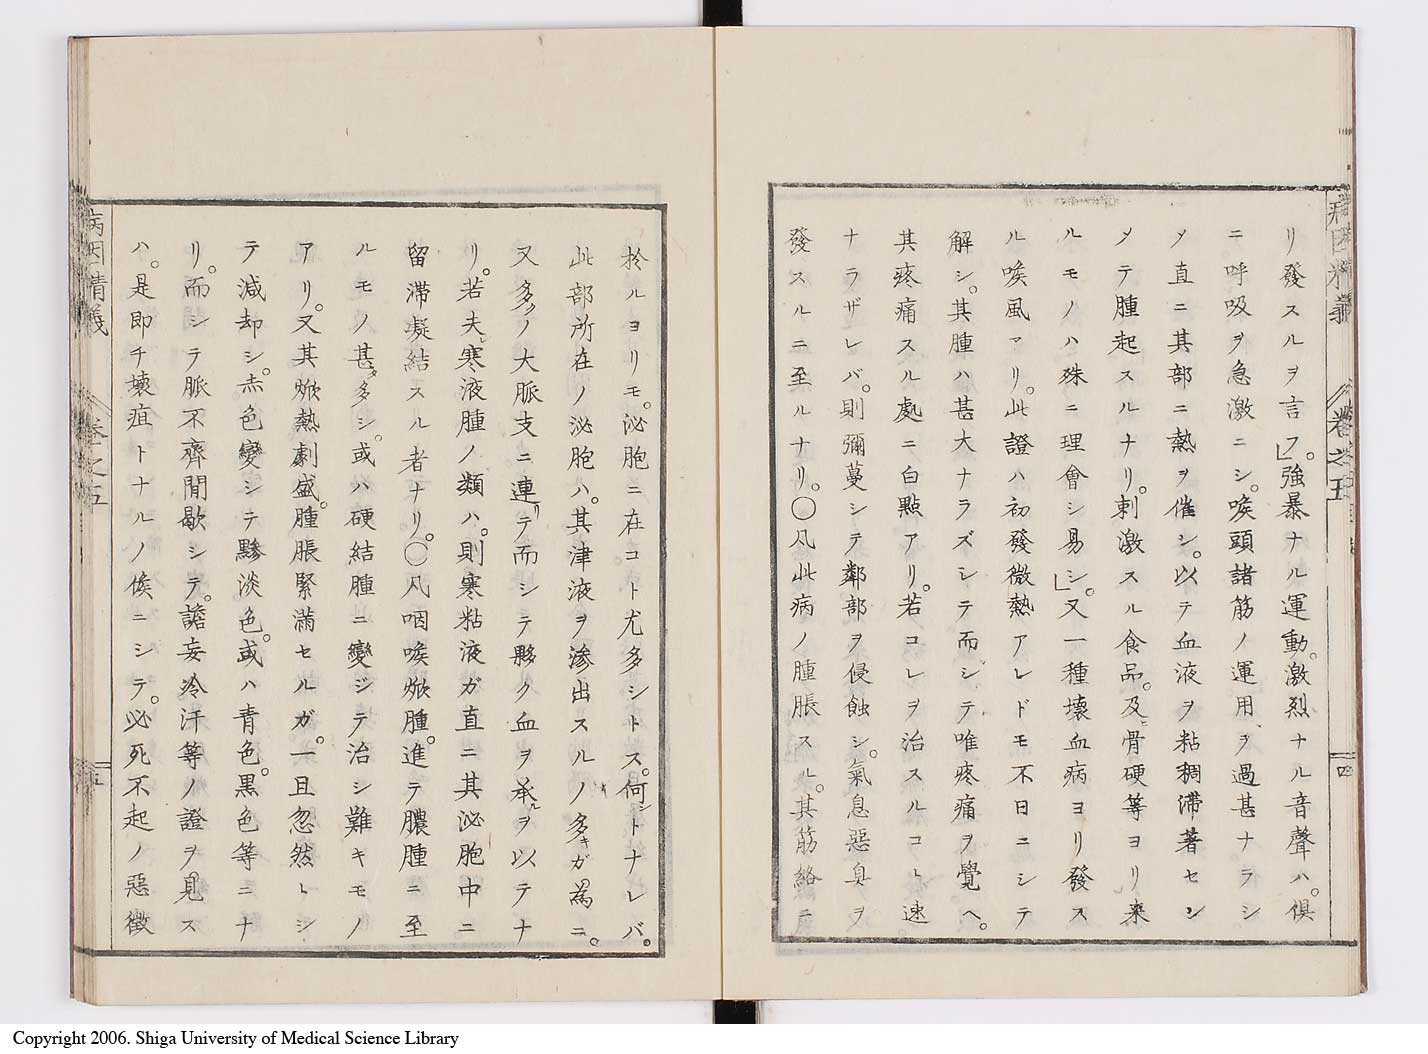 病因精義 卷之五 四
リ發スルヲ言フ」。強暴ナル運動。激烈ナル音聲ハ。俱
ニ呼吸ヲ急激ニシ。喉頭諸筋ノ運用ヲ過甚ナラシ
メ直ニ其部ニ熱ヲ催シ。以テ血液ヲ粘稠滯著セシ
メテ腫起スルナリ。刺激スル食品。及ヒ骨硬等ヨリ来
ルモノハ殊ニ理會シ易シ」。又一種壊血病ヨリ發ス
ル喉風アリ。此證ハ初發微熱アレドモ不日ニシテ
解シ。其腫ハ甚大ナラズシテ而シテ唯疼痛ヲ覺ヘ。
其疼痛スル處ニ白點アリ。若コレヲ治スルコト速
ナラザレバ。則彌蔓シテ鄰部ヲ侵蝕シ。氣息惡臭ヲ
發スルニ至ルナリ。〇凡此病ノ腫脹スル。其筋絡ニ
於ルヨリモ。泌胞ニ在コト尤多シトス。何トナレバ。
此部所在ノ泌胞ハ。其津液ヲ滲出スルノ多キガ為ニ。
又多クノ大脈支ニ連リテ而シテ夥ク血ヲ承ルヲ以テナ
リ。若夫レ寒液腫ノ類ハ。則寒粘液ガ直ニ其泌胞中ニ
留滯凝結スル者ナリ。〇凡咽喉焮腫。進テ膿腫ニ至
ルモノ甚タ多シ。或ハ硬結腫ニ變ジテ治シ難キモノ
アリ。又其焮熱劇盛。腫脹緊滿セルガ。一旦忽然トシ
テ減却シ。赤色變シテ黲淡色。或ハ青色。黒色等ニナ
リ。而シテ脈不齊閒歇シテ。譫妄冷汗等ノ證ヲ見ス
ハ。是即チ壊疽トナルノ候ニシテ。必死不起ノ惡徴
病因精義 卷之五 五
Copyright 2006. Shiga University of Medical Science Library